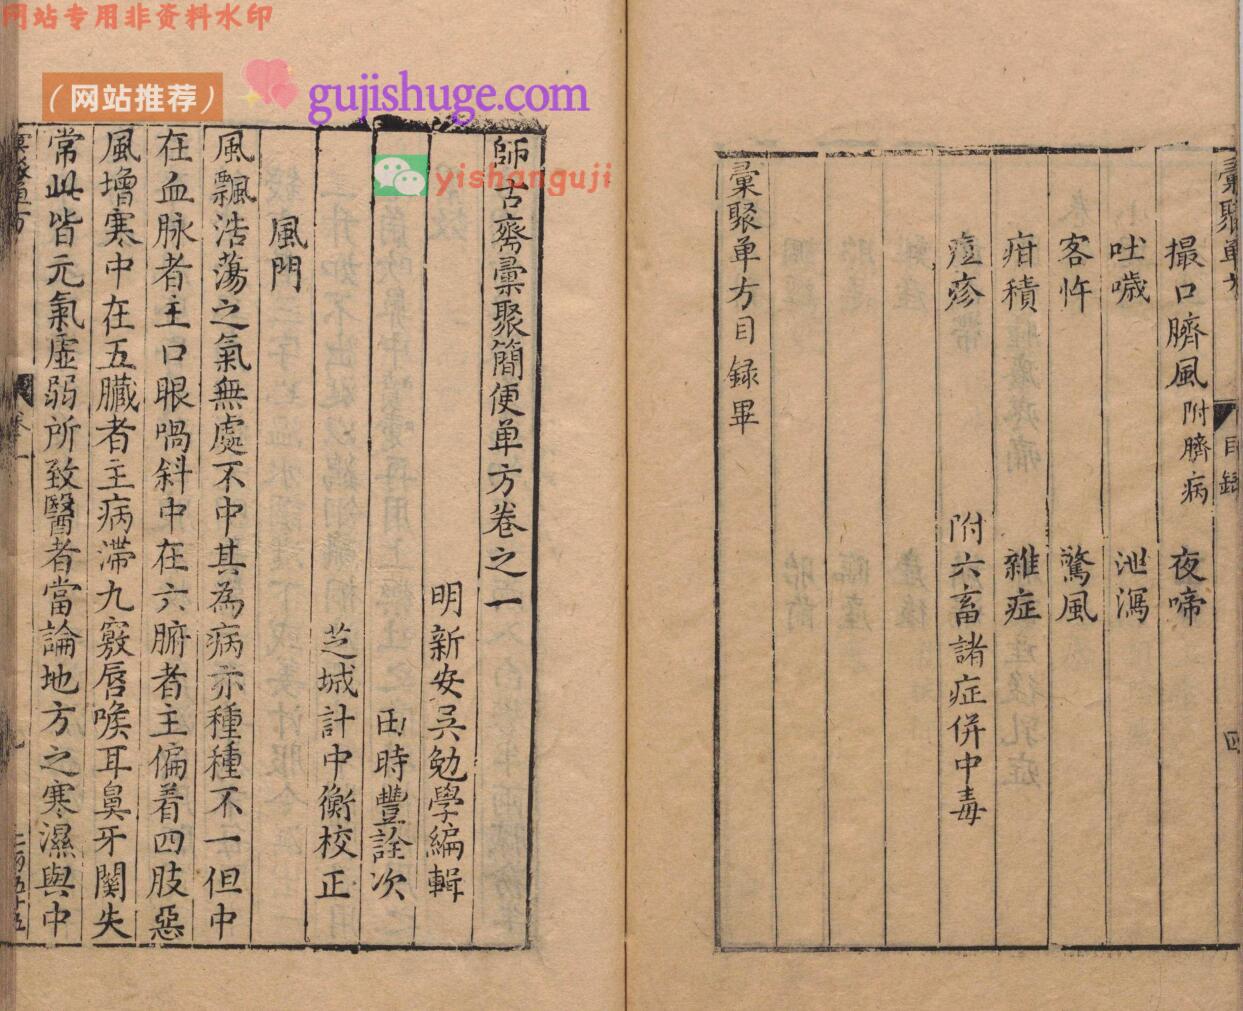 网站专用非资料水印
（网站推荐）
gujishuge.com
yishanguji
彙聚单方
目録
四
撮口臍風附臍病
夜啼
吐噦
泄瀉
客忤
驚風
疳積
雜症
痘疹
附六畜諸症併中毒
彙聚单方目録畢
師古齋彙聚簡便单方卷之一
明新安吳勉學編輯
田時豐詮次
芝城計中衡校正
風門
風飄浩蕩之氣無處不中其為病亦種種不一但中
在血脉者主口眼喎斜中在六腑者主偏着四肢惡
風增寒中在五臟者主病滯九竅唇喉耳鼻牙關失
常此皆元氣虛弱所致醫者當論地方之寒濕與中